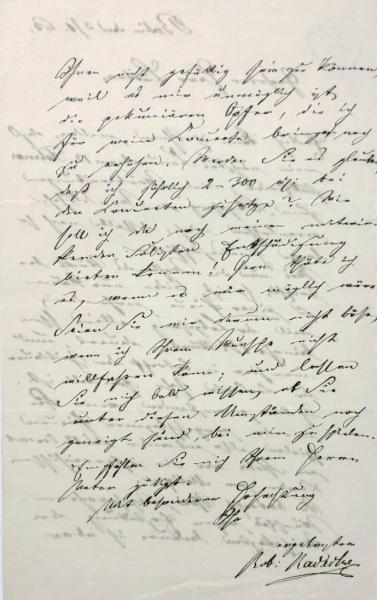 Ihnen nicht gefällig sein zu können,
weil es mir unmöglich ist,
die pekuniären Opfer, die ich
für meine Concerte bringe, noch
zu erhöhen. Werden Sie es glauben,
daß ich jährlich 2-300 bei
den Concerten zusetze? Wie
soll ich da noch meinen mitwir-
kenden Solisten Entschädigung
bieten können! Gern thäte ich
es, wenn es mir möglich wäre.
Seien Sie mir darum nicht böse,
wenn ich Ihrem Wunsche nicht
willfahren kann, und lassen
Sie mich bald wissen, ob Sie
unter diesen Umständen noch
geneigt sind, bei mir zu spielen.
Empfehlen Sie mich Ihrem Herrn
Vater gütigst.
Mit besonderer Hochachtung
Ihr
ergebenster
Rob: Radecke